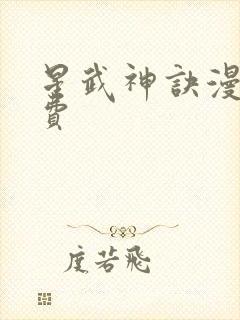 星武神訣漫
費
度若飛